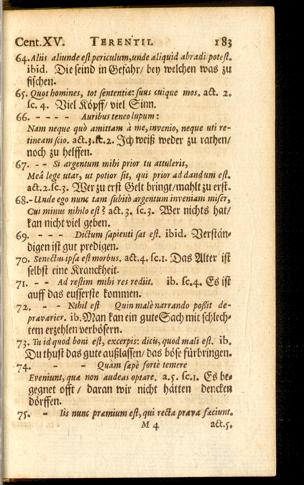 Cent. XV. TERENTII. 183
64. Aliis aliunde est periculum, unde aliquid abradi potest.
ibid. Die seind in Gefahr/ bey welchen was zu
fischen.
65. Quot homines, tot sententiæ: suus cuique mos. act. 2.
sc. 4. Viel Köpff/ viel Sinn.
66. - - - - Auribus teneo lupum:
Nam neque quo amittam à me, invenio, neque uti re-
tineam scio. act. 3. sc. 2. Ich weiß weder zu rathen/
noch zu helffen.
67. - - Si argentum mihi prior tu attuleris,
Meâ lege utar, ut potior sit, qui prior ad dandum est.
act. 2. sc. 3. Wer zu erst Gelt bringt/ mahlt zu erst.
68. - Unde ego nunc tam subitò argentum inveniam miser,
Cui minus nihilo est? act. 3. sc. 3. Wer nichts hat/
kan nicht viel geben.
69. - - - Dictum sapienti sat est. ibid. Verstän-
digen ist gut predigen.
70. Senectus ipsa est morbus. act. 4. sc. 1. Das Alter ist
selbst eine Kranckheit.
71. - - Ad restim mihi res rediit. ib. sc. 4. Es ist
auff das eusserste kommen.
72. - - - Nihil est Quin malè narrando poßit de-
pravarier. ib. Man kan ein gute Sach mit schlech-
tem erzehlen verbösern.
73. Tu id quod boni est, excerpis: dicis, quod mali est. ib.
Du thust das gute außlassen/ das böse fürbringen.
74. - Quàm sæpè fortè temerè
Eveniunt, quæ non audeas optare. a. 5. sc. 1. Es be-
gegnet offt/ daran wir nicht hätten dencken
dörffen.
75. - Iis nunc præmium est, qui recta prava faciunt.
M 4 act. 5.